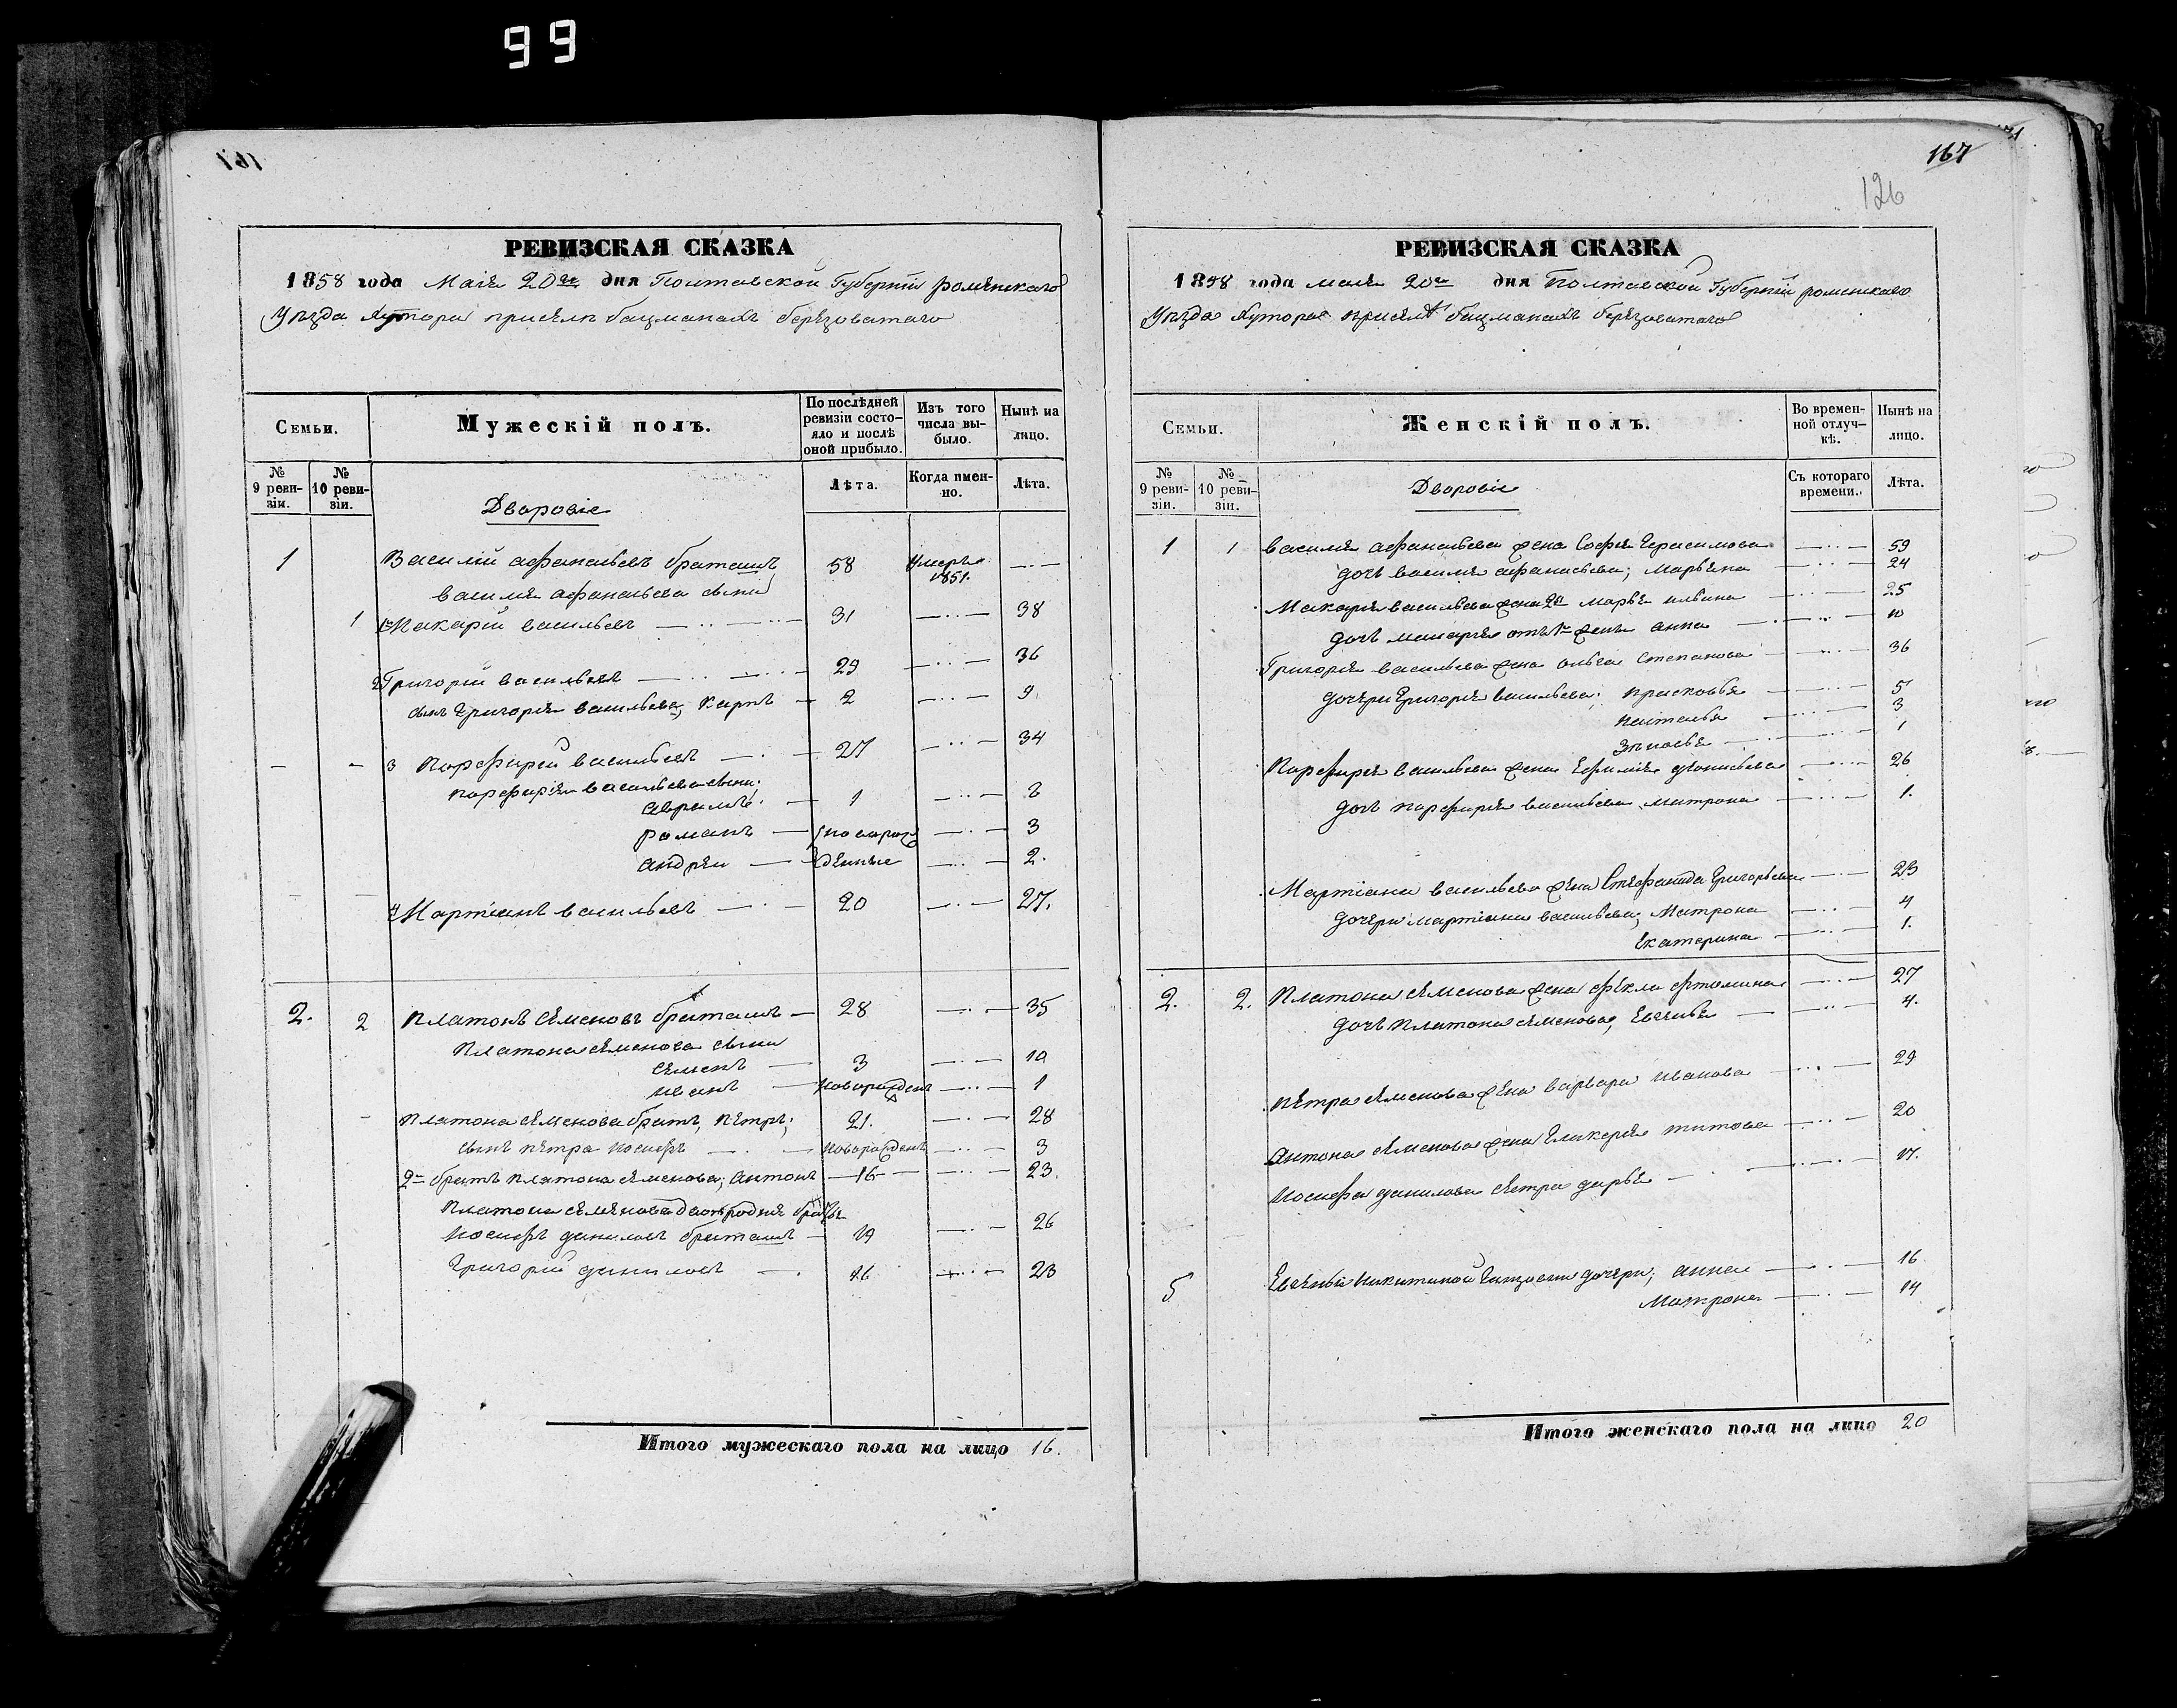 99
167
РЕВИЗСКАЯ СКАЗКА
1858 года Маія 20го дня Полтавской Губерніи роменскаго
Уѣзда Хутора присѣлк бацманахъ берѣзоватаго
Семьи.
Мужескій полъ.
По послѣдней ревизіи состояло и послѣ оной прибыло.
Изъ того числа выбыло.
Нынѣ на лицо.
№ 9 ревизіи.
№ 10 ревизіи.
Лѣта.
Когда именно.
Лѣта.
Дворовіе
1 Василій афанасьевъ браташъ 58 Умеръ 1851.
василія афанасьева сыни
1 1й Макарій васильевъ 31 38
2 Григорій васильевъ 29 36
сынъ Григорія васильева, Карпъ 2 9
3 Порфирій васильевъ 27 34
порфирія васильева сыни;
Аврамъ 1 8
романъ новорож 3
андрѣи денные 2.
4 Мартіанъ васильевъ 20 27.
2. 2 Платонъ сѣменовъ браташъ 28 35
Платона сѣменова сыни
сѣменъ 3 10
иванъ новорожденъ 1
Платона сѣменова братъ, пѣтръ; 21. 28
сынъ пѣтра иосифъ новорожденъ 3
2й братъ платона сѣменова; антонъ 16 23.
Платона сѣменова двоюродніе братья
иосифъ даниловъ браташъ 19 26
Григорій даниловъ 16 23
Итого мужескаго пола на лицо 16.
167
126
РЕВИЗСКАЯ СКАЗКА
1858 года маія 20го дня Полтавской Губерніи роменскаго
Уѣзда Хутора присѣлк бацманахъ берѣзоватаго
Семьи.
Женскій полъ.
Во временной отлучкѣ.
Нынѣ на лицо.
№ 9 ревизіи.
№ 10 ревизіи.
Съ котораго времени.
Лѣта.
Дворовіе
1 1 василія афанасьева жена Софія Герасимова 59
дочь василія афанасьева; марьяна 24
Макарія васильева жена 2я марья ильина 25
дочь макарія отъ 1й жены анна 10
Григорія васильева жена ольга Степанова 36
дочѣри Григорія васильева; прасковья 5
наталья 3
Зѣновья 1
Порфирія васильева жена Ефимія діонисьева 26
дочь порфирія васильева матрона 1.
Мартіана васильева жѣна Стѣфанида Григорьева 23
дочѣри мартіана васильева; Матрона 4
Екатерина 1.
2. 2. Платона сѣменова жена фѣкла фтомина 27
дочь платона сѣменова, Евгенія 4.
пѣтра сѣменова жѣна варвара иванова 29
Антона сѣменова жена Гликерія титова 20
иосифа данилова сѣстра дарья 17.
5 Евгеніи никитиной дочѣри; анна 16
Матрона 14
Итого женскаго пола на лицо 20